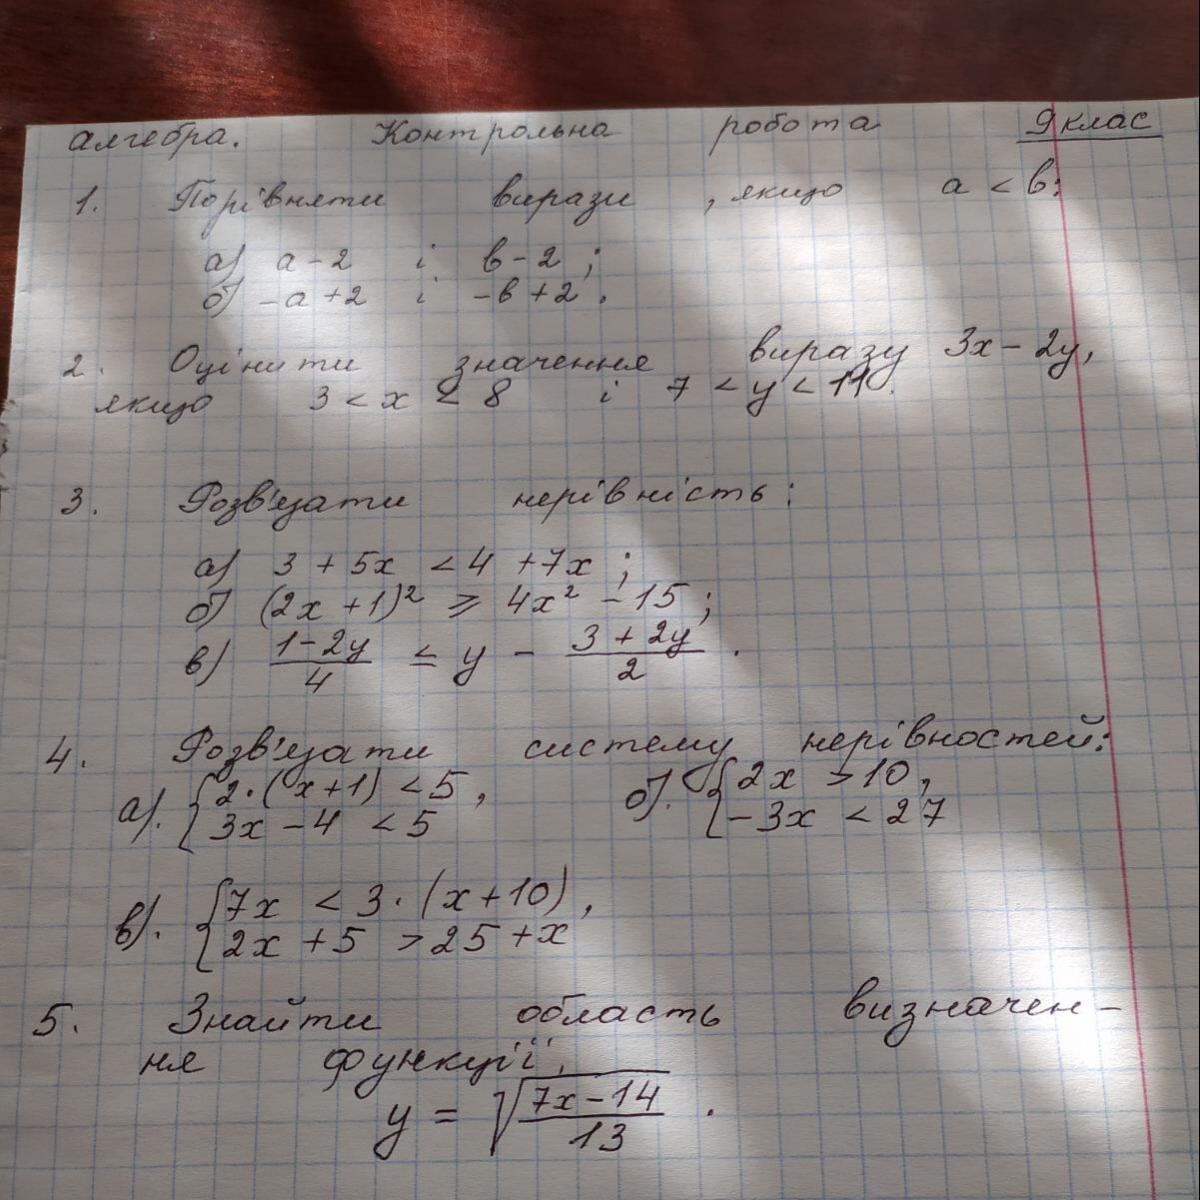 Алгебра. Контрольна робота 9 клас
1. Порівняти вирази, якщо a < b:
а) a - 2 і b - 2;
б) -a + 2 і -b + 2.
2. Оцінити значення виразу 3x - 2y,
якщо 3 < x < 8 і 7 < y < 11.
3. Розв'язати нерівність:
а) 3 + 5x < 4 + 7x;
б) (2x + 1)² ⩾ 4x² - 15;
в) (1 - 2y)/4 ≤ y - (3 + 2y)/2.
4. Розв'язати систему нерівностей:
а). { 2·(x+1) < 5, б). { 2x > 10,
3x - 4 < 5 -3x < 27
в). { 7x < 3·(x+10),
2x + 5 > 25 + x
5. Знайти область визначен-
ня функції.
y = √((7x - 14)/13).